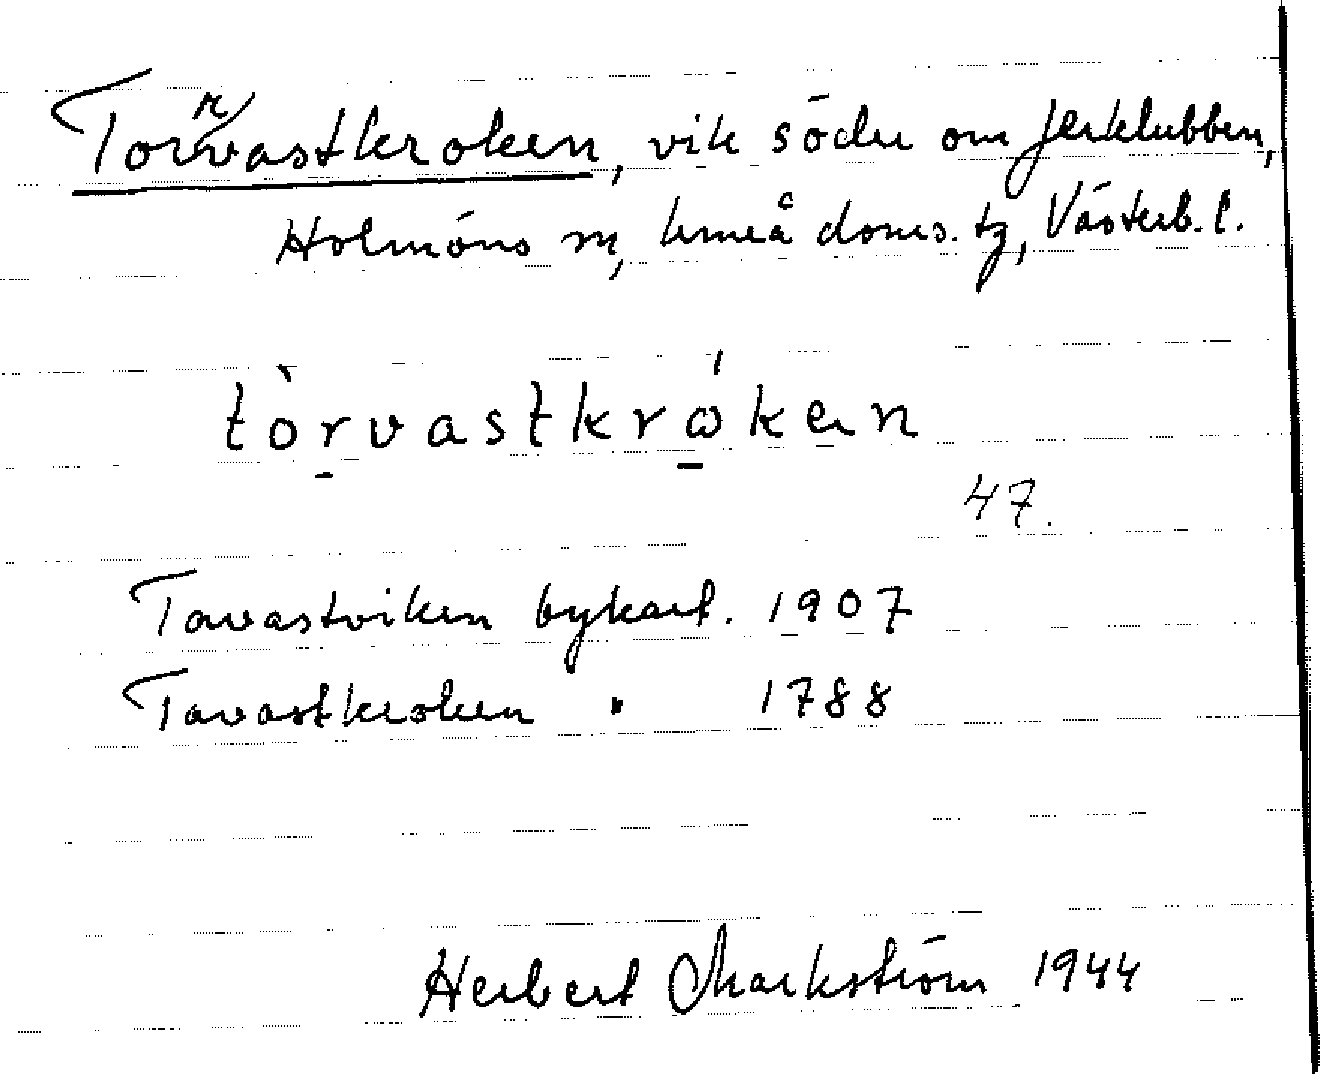 Torvastkroken, vik söder om Jerklubben,
Holmöns sn, Umeå doms. tg, Västerb. l.
tòrvastkrω´kεn
47.
Tavastviken bykart. 1907
Tavastkroken " 1788
Herbert Markström 1944